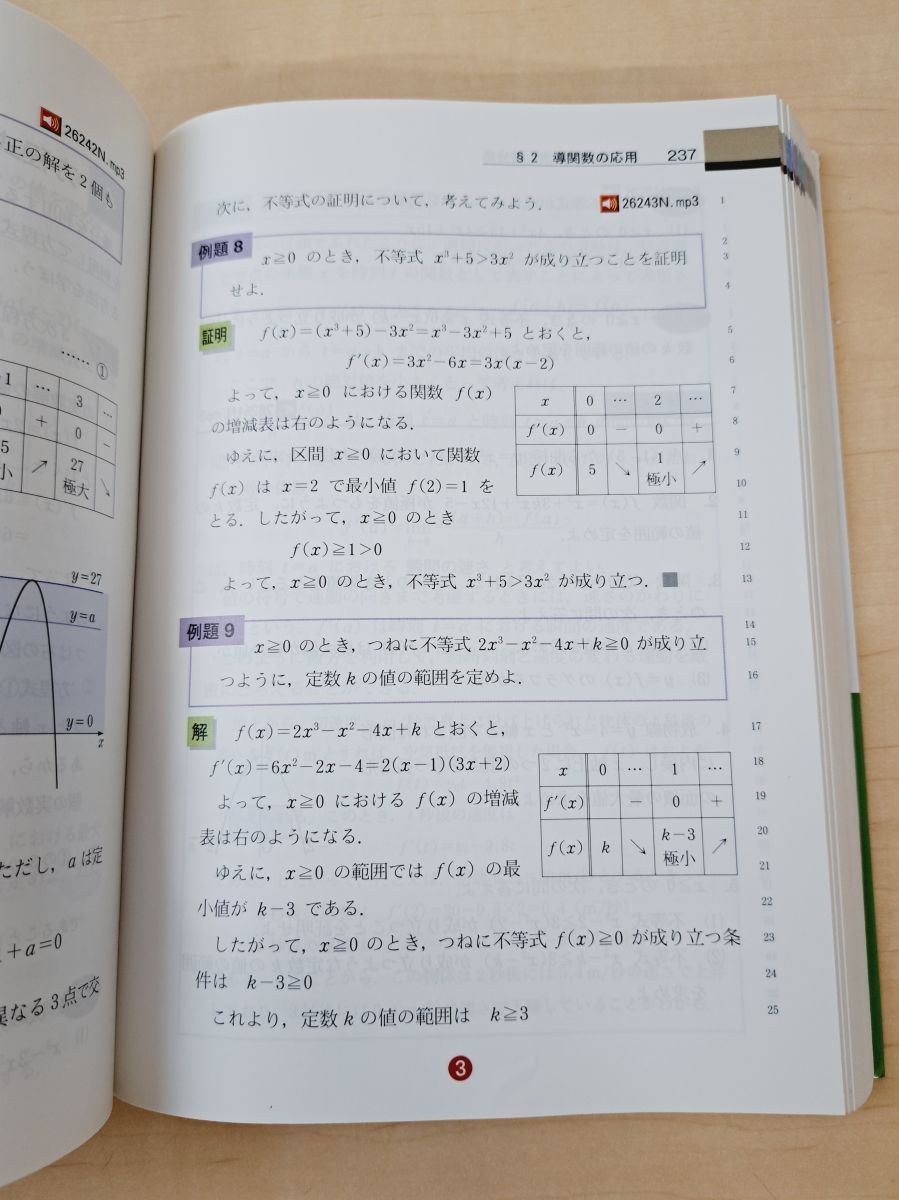 26242N.mp3
正の解を2個も
…… ①
-1 … 3 …
0 + 0 −
5 ↗ 27 ↘
小 極大
y=27
y=a
y=0
x
ただし，aは定
+a=0
異なる3点で交
§2 導関数の応用 237
次に，不等式の証明について，考えてみよう． 26243N.mp3 1
2
例題8
x≧0 のとき，不等式 x³+5>3x² が成り立つことを証明 3
せよ． 4
証明 f(x)=(x³+5)−3x²=x³−3x²+5 とおくと， 5
f′(x)=3x²−6x=3x(x−2) 6
よって，x≧0 における関数 f(x) 7
の増減表は右のようになる． 8
ゆえに，区間 x≧0 において関数 9
f(x) は x=2 で最小値 f(2)=1 を 10
とる．したがって，x≧0 のとき 11
f(x)≧1>0 12
x 0 … 2 …
f′(x) 0 − 0 +
f(x) 5 ↘ 1 ↗
極小
よって，x≧0 のとき，不等式 x³+5>3x² が成り立つ．■ 13
14
例題9
x≧0 のとき，つねに不等式 2x³−x²−4x+k≧0 が成り立 15
つように，定数 k の値の範囲を定めよ． 16
解 f(x)=2x³−x²−4x+k とおくと， 17
f′(x)=6x²−2x−4=2(x−1)(3x+2) 18
よって，x≧0 における f(x) の増減 19
表は右のようになる． 20
ゆえに，x≧0 の範囲では f(x) の最 21
小値が k−3 である． 22
x 0 … 1 …
f′(x) − 0 +
f(x) k ↘ k−3 ↗
極小
したがって，x≧0 のとき，つねに不等式 f(x)≧0 が成り立つ条 23
件は k−3≧0 24
これより，定数 k の値の範囲は k≧3 25
3